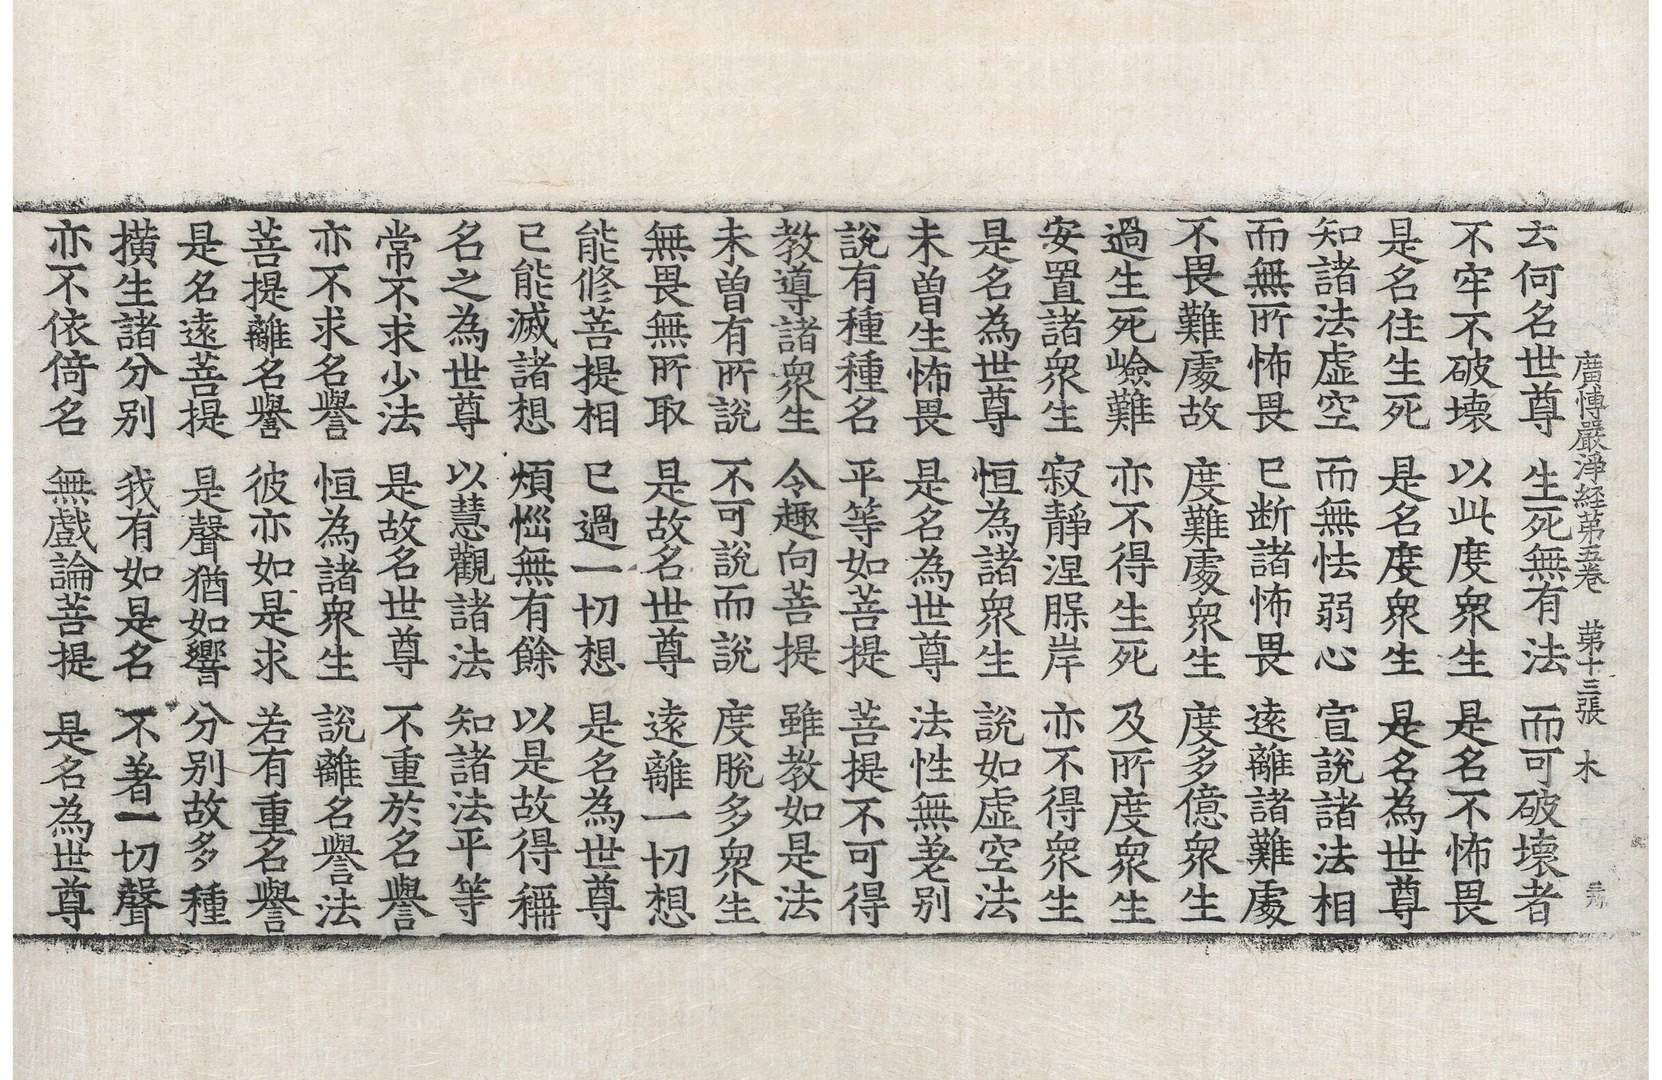 廣博嚴淨経第五卷　第十三張　木
云何名世尊　生死無有法　而可破壞者
不牢不破壞　以此度衆生　是名不怖畏
是名住生死　是名度衆生　是名為世尊
知諸法虛空　而無怯弱心　宣說諸法相
而無所怖畏　已断諸怖畏　遠離諸難處
不畏難處故　度難處衆生　度多億衆生
過生死嶮難　亦不得生死　及所度衆生
安置諸衆生　寂靜涅槃岸　亦不得衆生
是名為世尊　恒為諸衆生　說如虛空法
未曽生怖畏　是名為世尊　法性無差别
說有種種名　平等如菩提　菩提不可得
教導諸衆生　令趣向菩提　雖教如是法
未曽有所說　不可說而說　度脫多衆生
無畏無所取　是故名世尊　遠離一切想
能修菩提相　已過一切想　是名為世尊
已能滅諸想　煩惱無有餘　以是故得稱
名之為世尊　以慧觀諸法　知諸法平等
常不求少法　是故名世尊　不重於名譽
亦不求名譽　恒為諸衆生　說離名譽法
菩提離名譽　彼亦如是求　若有重名譽
是名遠菩提　是聲猶如響　分别故多種
撗生諸分别　我有如是名　不著一切聲
亦不依倚名　無戲論菩提　是名為世尊